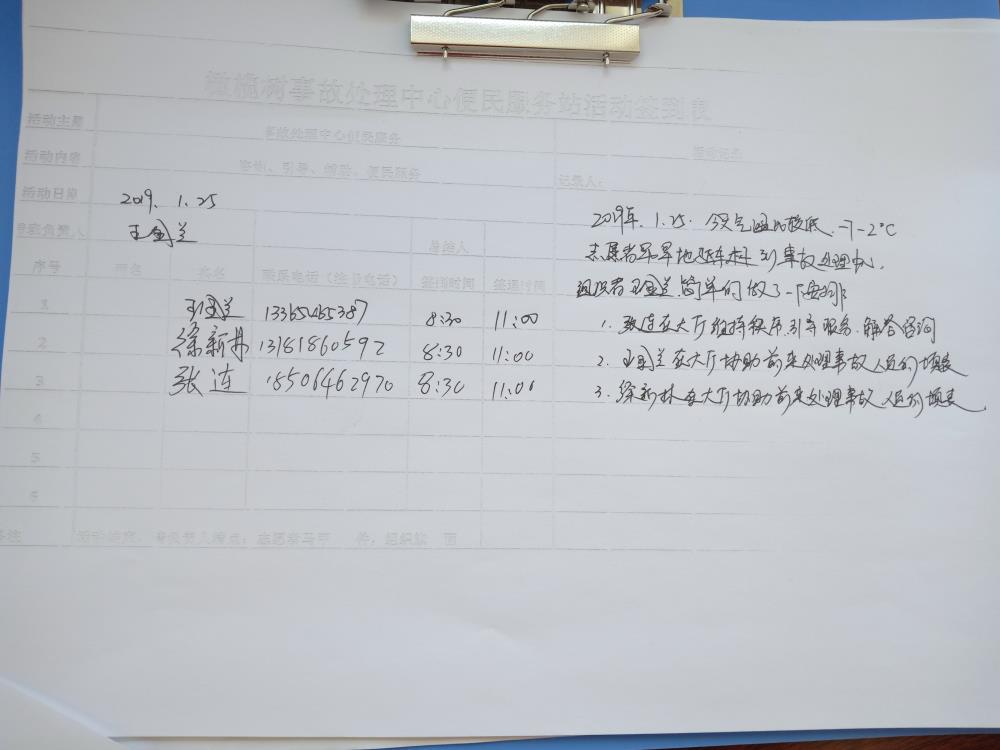 橄榄树事故处理中心便民服务站活动签到表
活动主题 事故处理中心便民服务 活动记录
活动内容 咨询、引导、辅助、便民服务 记录人:
活动日期 2019. 1.25
负责人 王国兰
序号 联系电话 签到时间 签退时间
1 王国兰 13365465387 8:30 11:00
2 徐新丹 13181860592 8:30 11:00
3 张连 18506462970 8:30 11:00
4
5
6
备注 志愿者马甲 件,组织旗 面
2019年. 1.25. 今天气温比较低. -7-2°C
志愿者早早地 到事故处理中心.
组织者王国兰简单们做了一下安排
1. 张连在大厅维持秩序.引导服务.解答咨询
2. 王国兰在大厅协助前来处理事故人员们填表
3. 徐新林在大厅协助前来处理事故人员们填表.